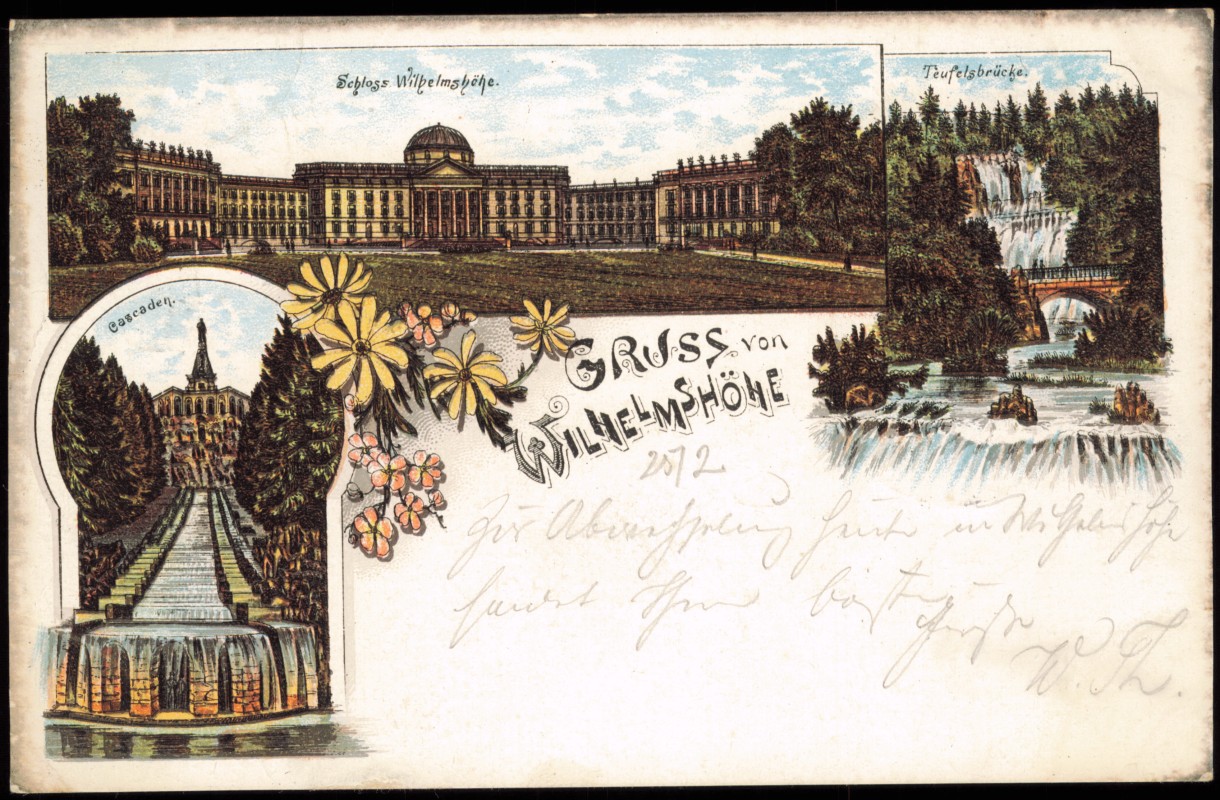 Schloss Wilhelmshöhe.
Teufelsbrücke.
Cascaden.
GRUSS von
WILHELMSHÖHE
25/2
Zur Abwechslung heute in Wilhelmshöhe
sendet Ihnen beste
Grüße
W. Th.